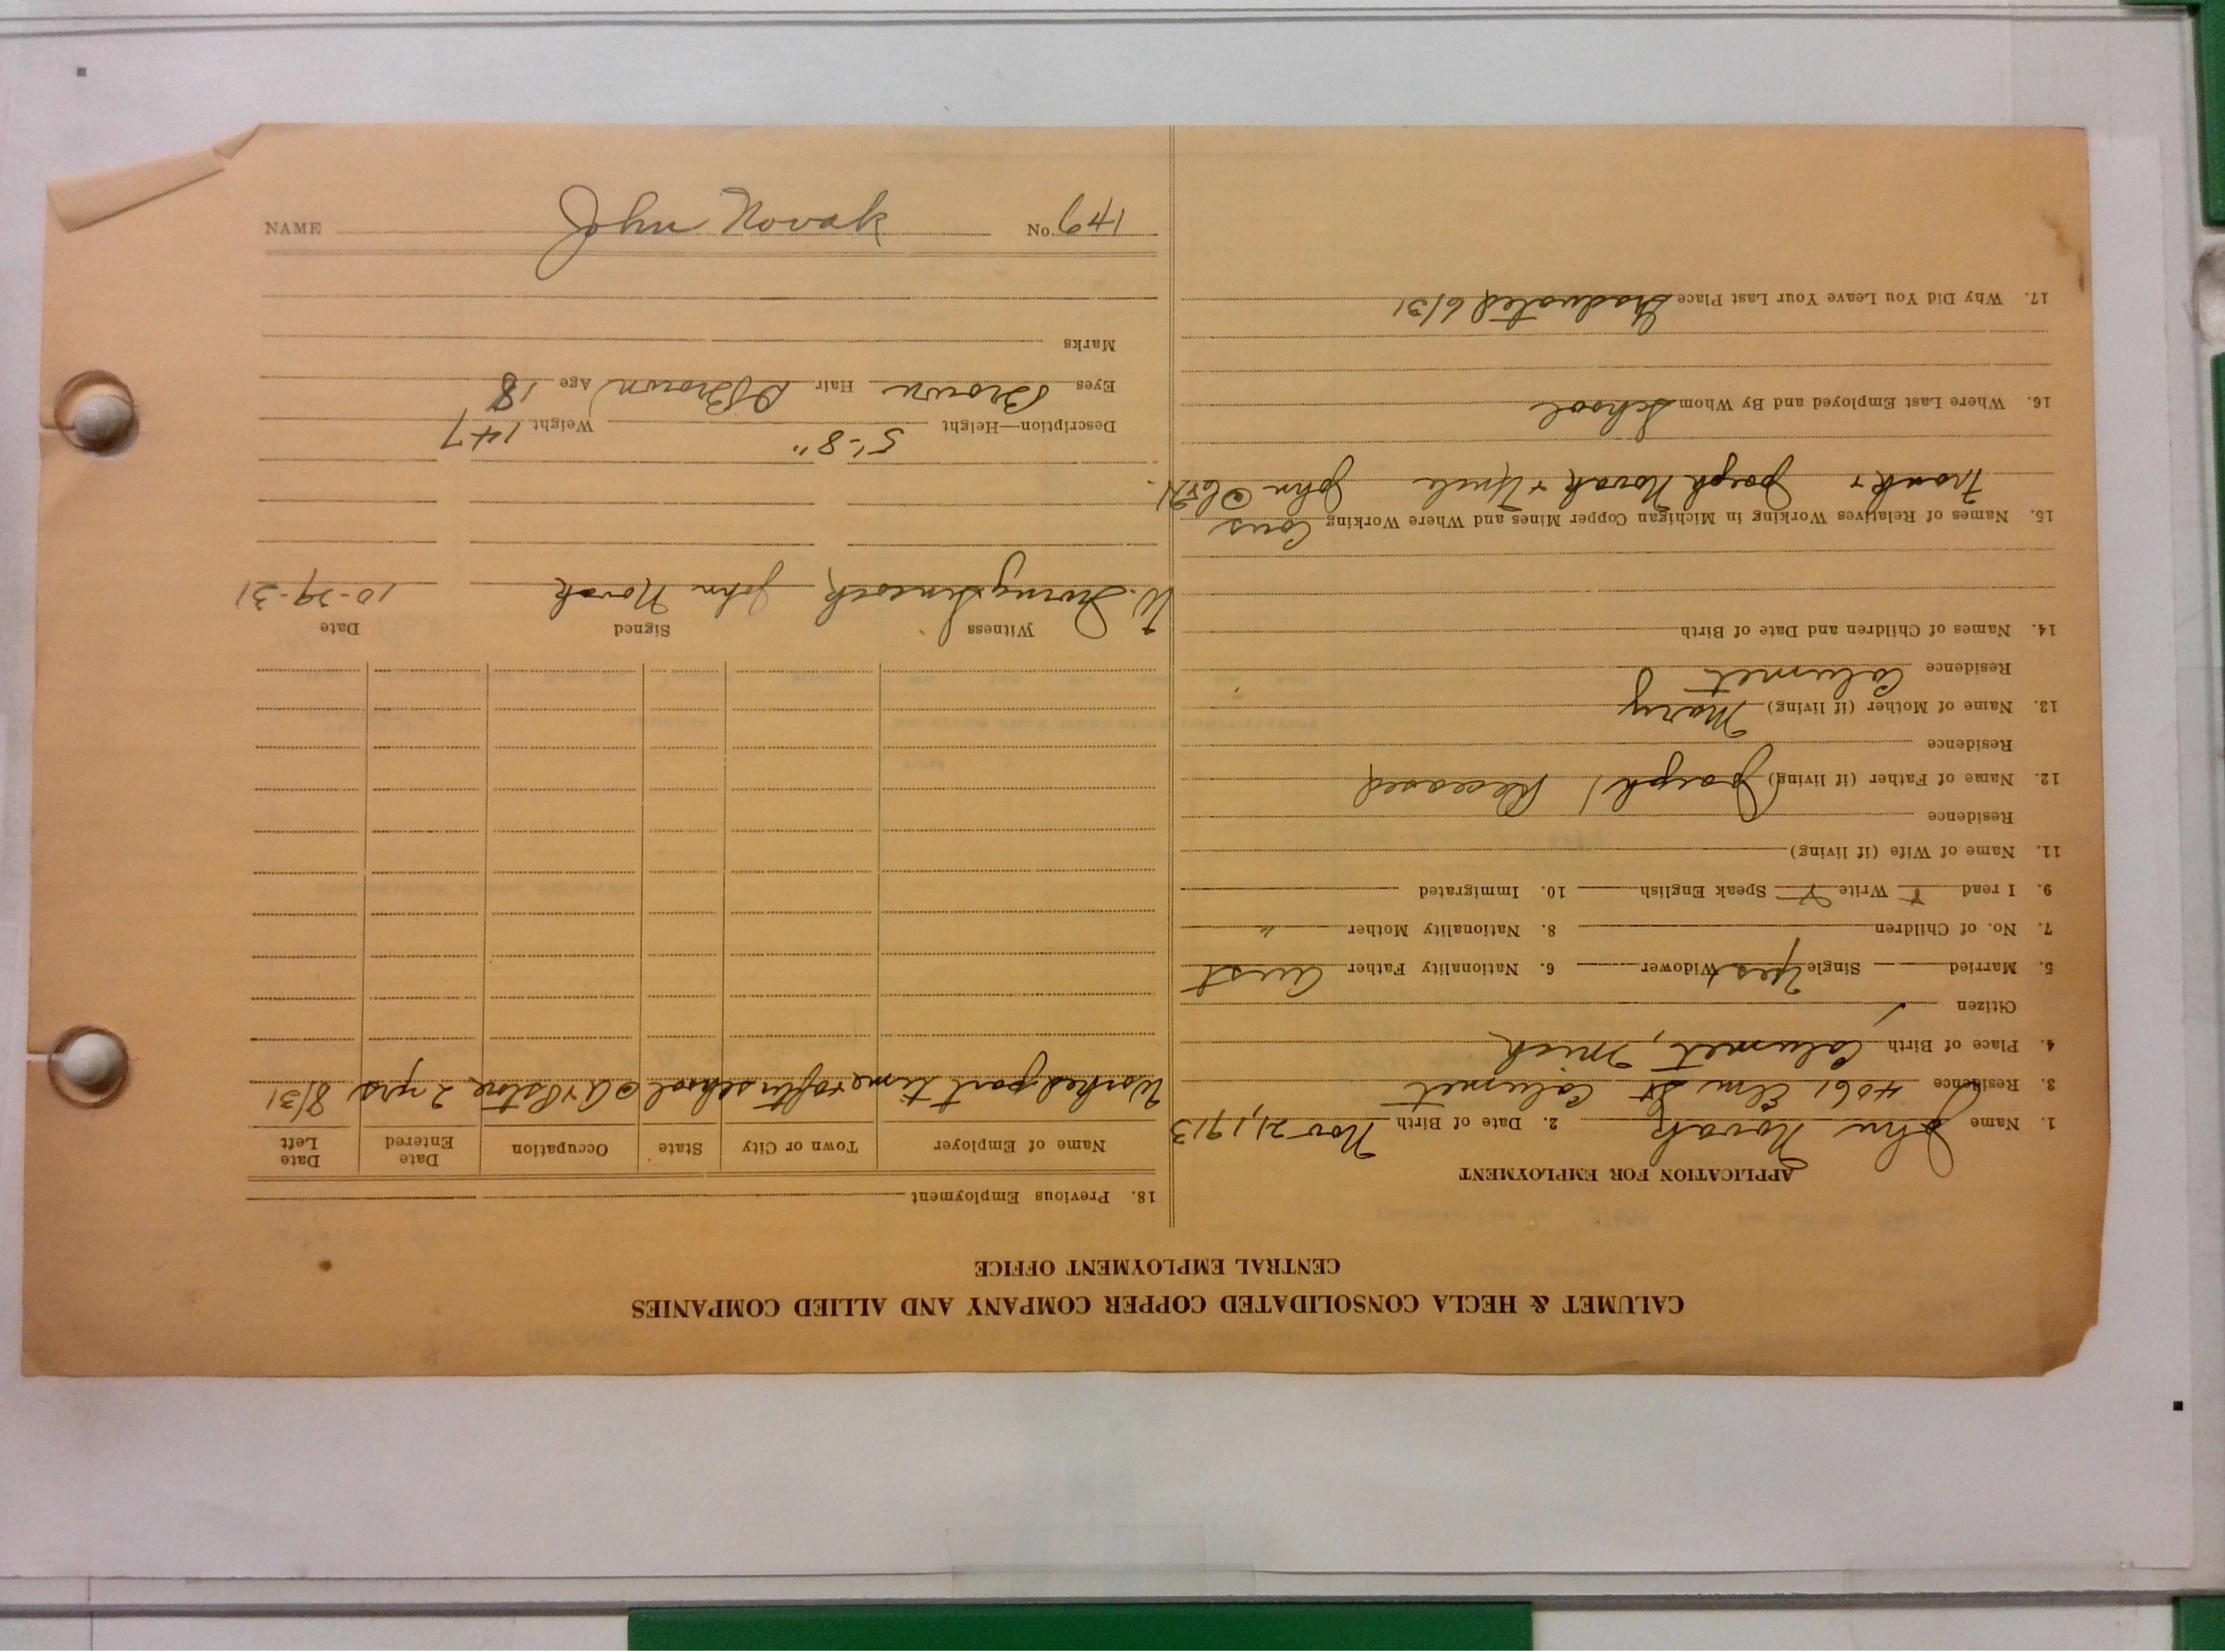 CALUMET & HECLA CONSOLIDATED COPPER COMPANY AND ALLIED COMPANIES
CENTRAL EMPLOYMENT OFFICE
APPLICATION FOR EMPLOYMENT
1. Name John Novak 2. Date of Birth Nov 21, 1913
3. Residence 4061 Elm St Calumet
4. Place of Birth Calumet, Mich
Citizen ✓
5. Married Single Yes Widower 6. Nationality Father Aust
7. No. of Children 8. Nationality Mother "
9. I read Write Speak English 10. Immigrated
11. Name of Wife (if living)
Residence
12. Name of Father (if living) (Joseph) Deceased
Residence
13. Name of Mother (if living) Mary
Residence Calumet
14. Names of Children and Date of Birth
15. Names of Relatives Working in Michigan Copper Mines and Where Working Cous
Frank + Joseph Novak + Uncle John @ C&H.
16. Where Last Employed and By Whom School
17. Why Did You Leave Your Last Place Graduated 6/31
18. Previous Employment
Name of Employer Town or City State Occupation Date Entered Date Left
Worked part time + after school @ A&P store 2 yrs 8/31
Witness Signed Date
W. Irving John Novak 10-29-31
Description—Height 5'-8" Weight 147
Eyes Brown Hair D Brown Age 18
Marks
NAME John Novak No.